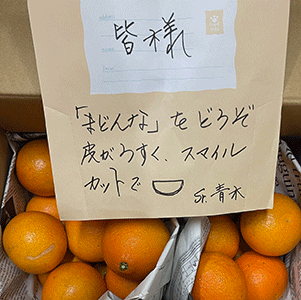 皆様
「まどんな」をどうぞ
皮がうすく、スマイル
カットで
Sr.青木